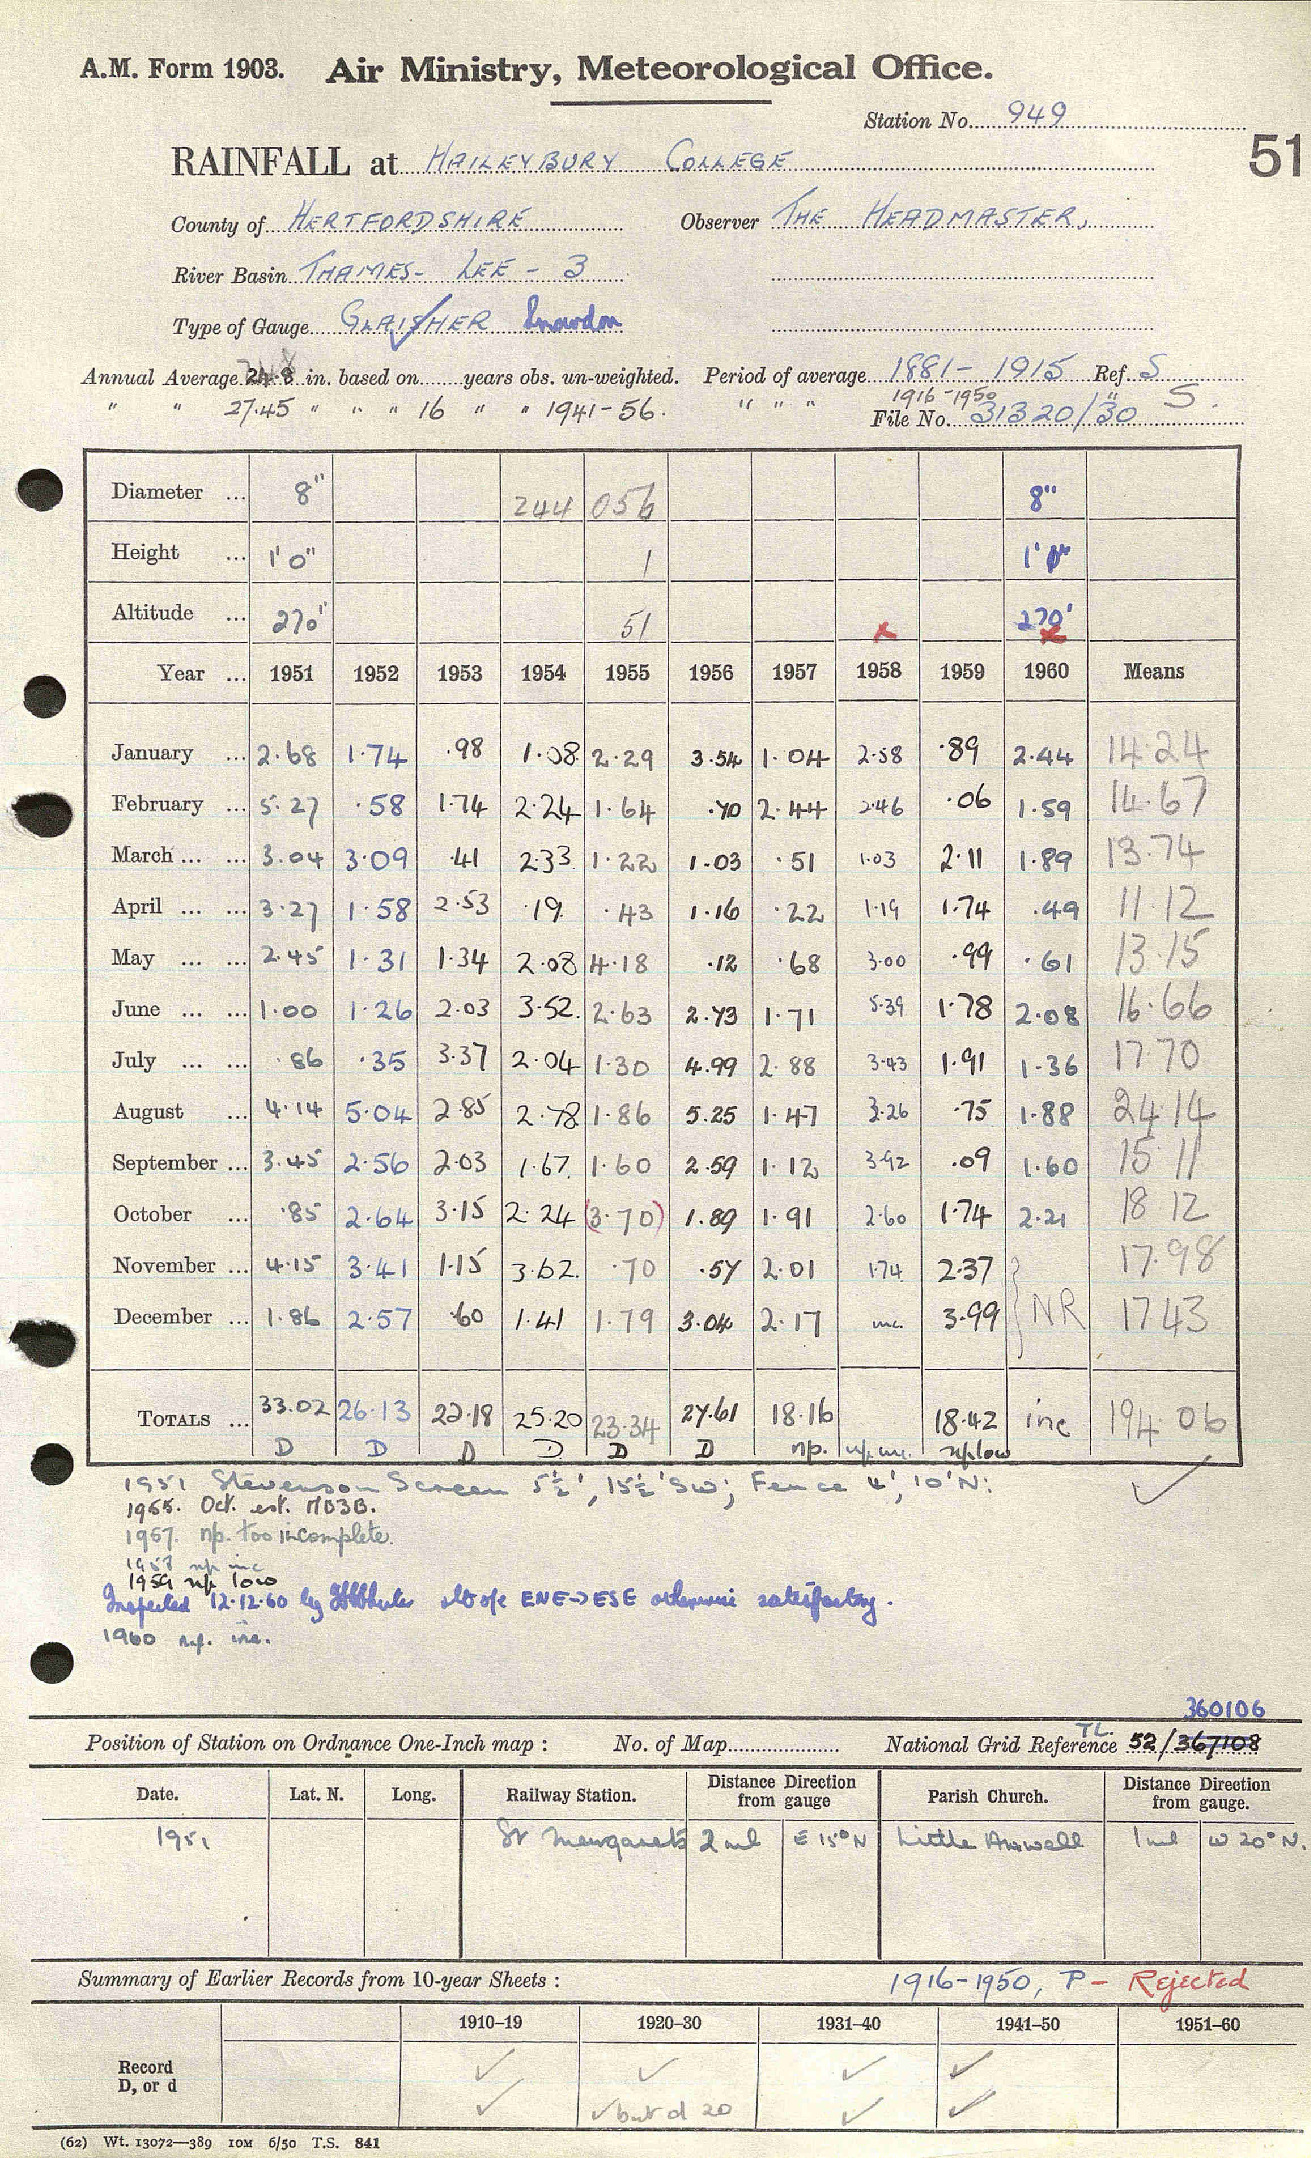 A.M. Form 1903. Air Ministry, Meteorological Office.
Station No. 949
51
RAINFALL at HAILEYBURY COLLEGE
County of HERTFORDSHIRE Observer THE HEADMASTER,
River Basin THAMES - LEE - 3
Type of Gauge GLAISHER Snowdon
Annual Average 24.8 in. based on years obs. un-weighted. Period of average 1881-1915 Ref. S
" " 27.45 " " " 16 " " 1941-56. " " " 1916-1950 " S.
File No. 31320/30
Diameter ... 8" 244 056 8"
Height ... 1'0" 1 1'0"
Altitude ... 270' 51 x 270' x
Year ... 1951 1952 1953 1954 1955 1956 1957 1958 1959 1960 Means
January ... 2.68 1.74 .98 1.08 2.29 3.54 1.04 2.58 .89 2.44 14.24
February ... 5.27 .58 1.74 2.24 1.64 .70 2.44 2.46 .06 1.59 14.67
March ... ... 3.04 3.09 .41 2.33 1.22 1.03 .51 1.03 2.11 1.89 13.74
April ... ... 3.27 1.58 2.53 .19 .43 1.16 .22 1.19 1.74 .49 11.12
May ... ... 2.45 1.31 1.34 2.08 4.18 .12 .68 3.00 .99 .61 13.15
June ... ... 1.00 1.26 2.03 3.52 2.63 2.73 1.71 5.39 1.78 2.08 16.66
July ... ... .86 .35 3.37 2.04 1.30 4.99 2.88 3.43 1.91 1.36 17.70
August ... 4.14 5.04 2.85 2.78 1.86 5.25 1.47 3.26 .75 1.88 24.14
September ... 3.45 2.56 2.03 1.67 1.60 2.59 1.12 3.92 .09 1.60 15.11
October ... .85 2.64 3.15 2.24 (3.70) 1.89 1.91 2.60 1.74 2.21 18.12
November ... 4.15 3.41 1.15 3.62 .70 .57 2.01 1.74 2.37 17.98
December ... 1.86 2.57 .60 1.41 1.79 3.04 2.17 inc. 3.99 NR 17.43
TOTALS ... 33.02 26.13 22.18 25.20 23.34 27.61 18.16 18.42 inc 194.06
D D D D D D np. np inc. np low
1951 Stevenson Screen 5½', 15½' SW; Fence 4', 10' N:
1955. Oct. est. MO3B.
1957. np. too incomplete.
1958 np inc
1959 np low
Inspected 12.12.60 by ENE->ESE otherwise satisfactory.
1960 n.p. inc.
360106
Position of Station on Ordnance One-Inch map : No. of Map National Grid Reference TL. 52/367108
Date. Lat. N. Long. Railway Station. Distance Direction from gauge Parish Church. Distance Direction from gauge.
1951 St Margarets 2 ml E 15° N Little Amwell 1 ml W 20° N.
Summary of Earlier Records from 10-year Sheets : 1916-1950, P - Rejected
1910–19 1920–30 1931–40 1941–50 1951–60
Record ✓ ✓ ✓ ✓
D, or d ✓ ✓ but d 20 ✓ ✓
(62) Wt. 13072—389 10M 6/50 T.S. 841